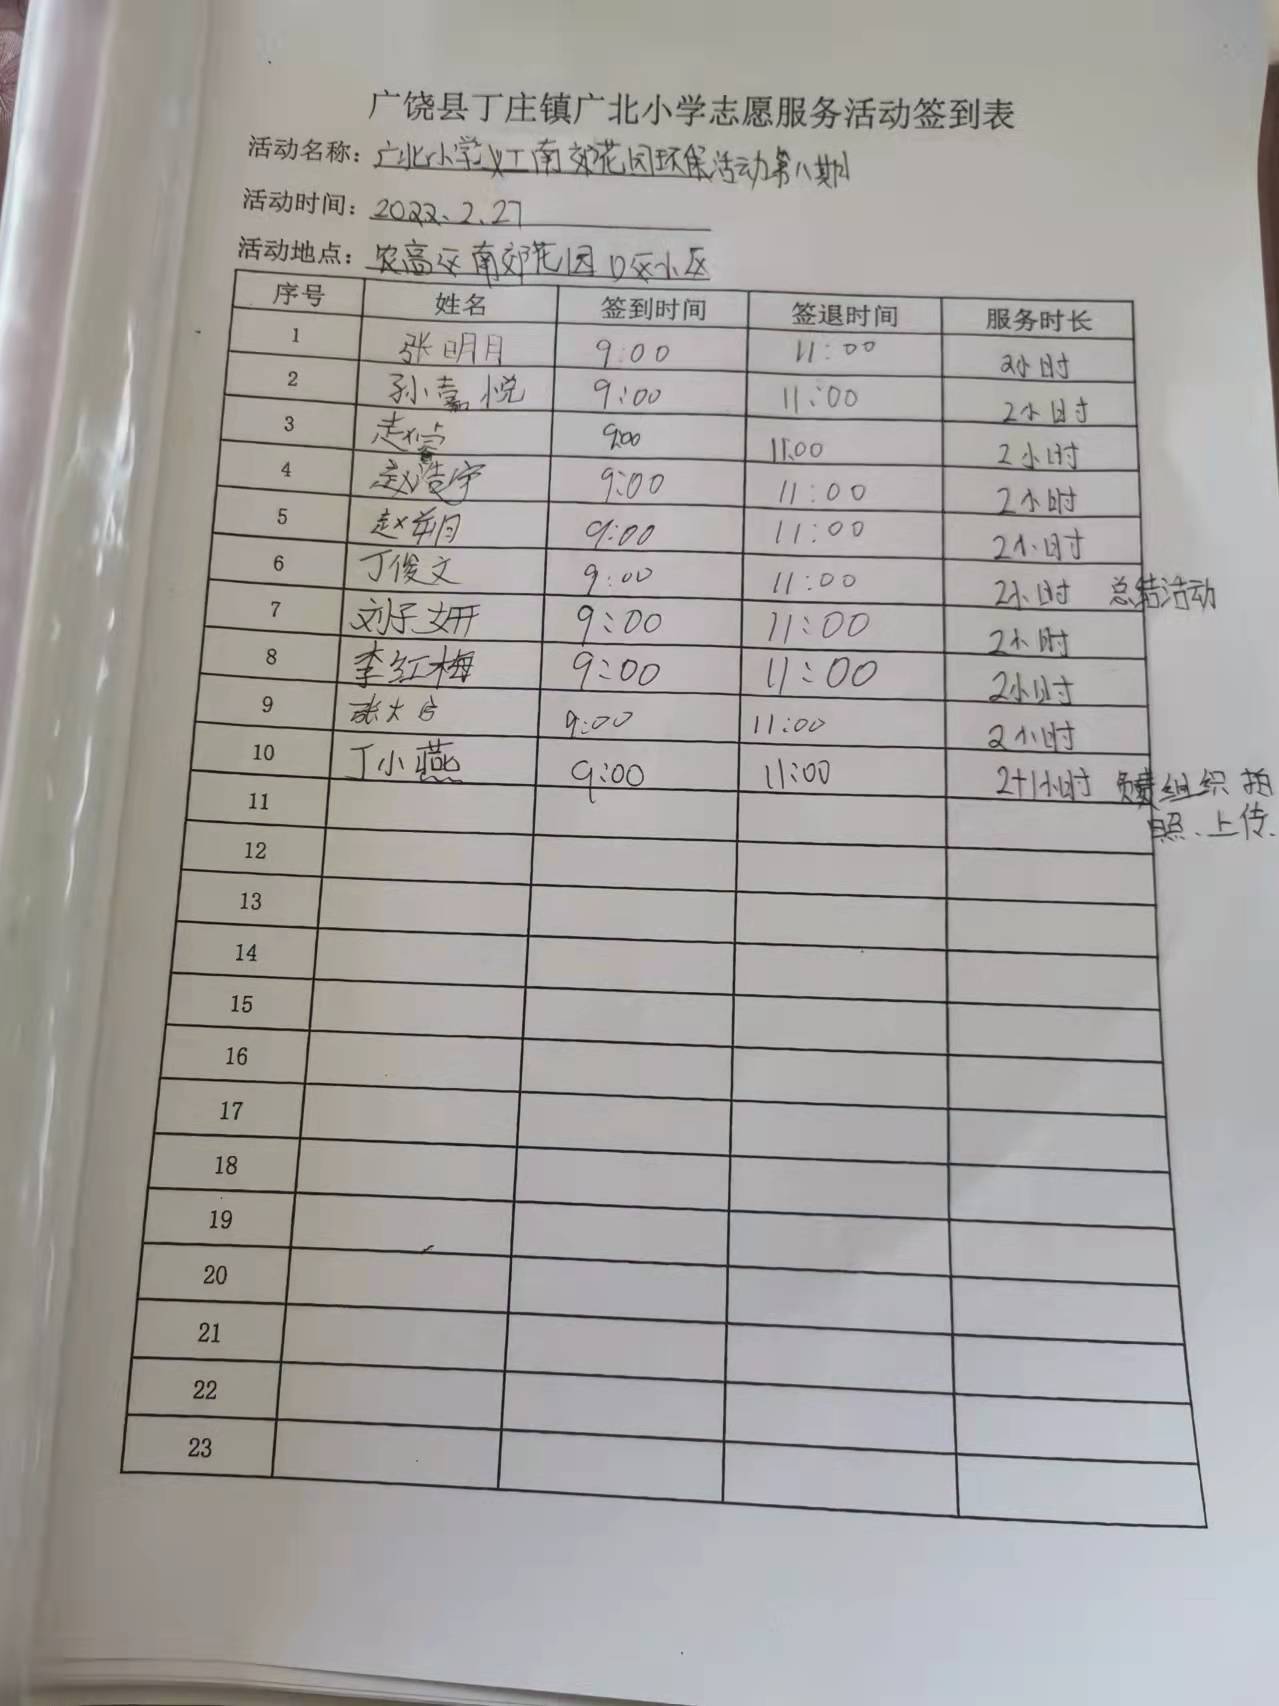 广饶县丁庄镇广北小学志愿服务活动签到表
活动名称：广北小学义工南郊花园环保活动第八期
活动时间：2022.2.27
活动地点：农高区南郊花园D区小区
序号 姓名 签到时间 签退时间 服务时长
1 张明月 9:00 11:00 2小时
2 孙嘉悦 9:00 11:00 2小时
3 赵睿 9:00 11:00 2小时
4 赵浩宇 9:00 11:00 2小时
5 赵 9:00 11:00 2小时
6 丁俊文 9:00 11:00 2小时 总结活动
7 刘子妍 9:00 11:00 2小时
8 李红梅 9:00 11:00 2小时
9 张大 9:00 11:00 2小时
10 丁小燕 9:00 11:00 2+1小时 负责组织 拍
照、上传.
11
12
13
14
15
16
17
18
19
20
21
22
23